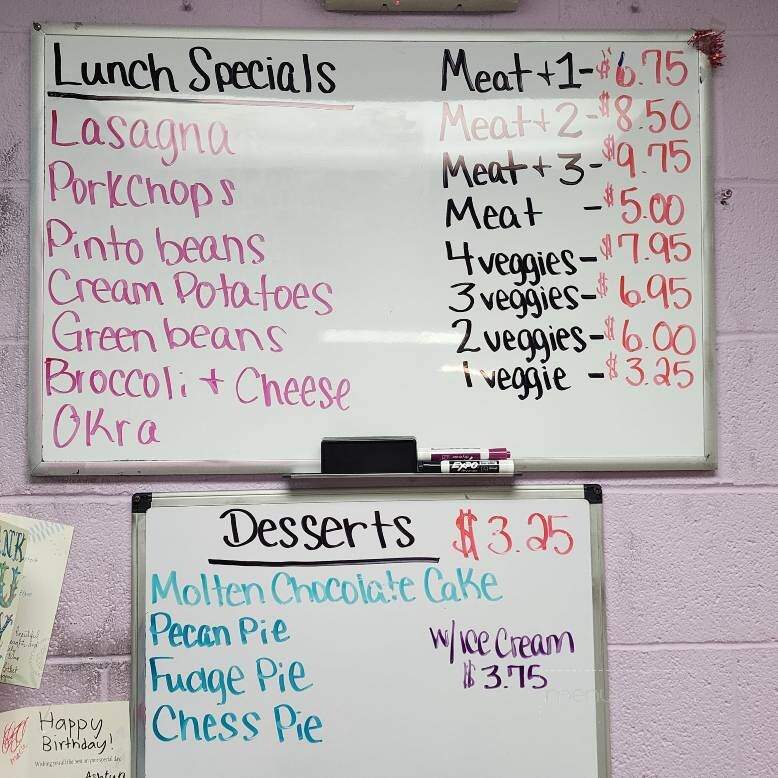 Lunch Specials
Lasagna
PorkChops
Pinto beans
Cream Potatoes
Green beans
Broccoli + Cheese
Okra
Meat + 1 - $6.75
Meat + 2 - $8.50
Meat + 3 - $9.75
Meat - $5.00
4 veggies - $7.95
3 veggies - $6.95
2 veggies - $6.00
1 veggie - $3.25
EXPO
Desserts $3.25
Molten Chocolate Cake
Pecan Pie
Fudge Pie
Chess Pie
w/ice Cream
$3.75
Happy
Birthday!
Wishing you all the best on your special day